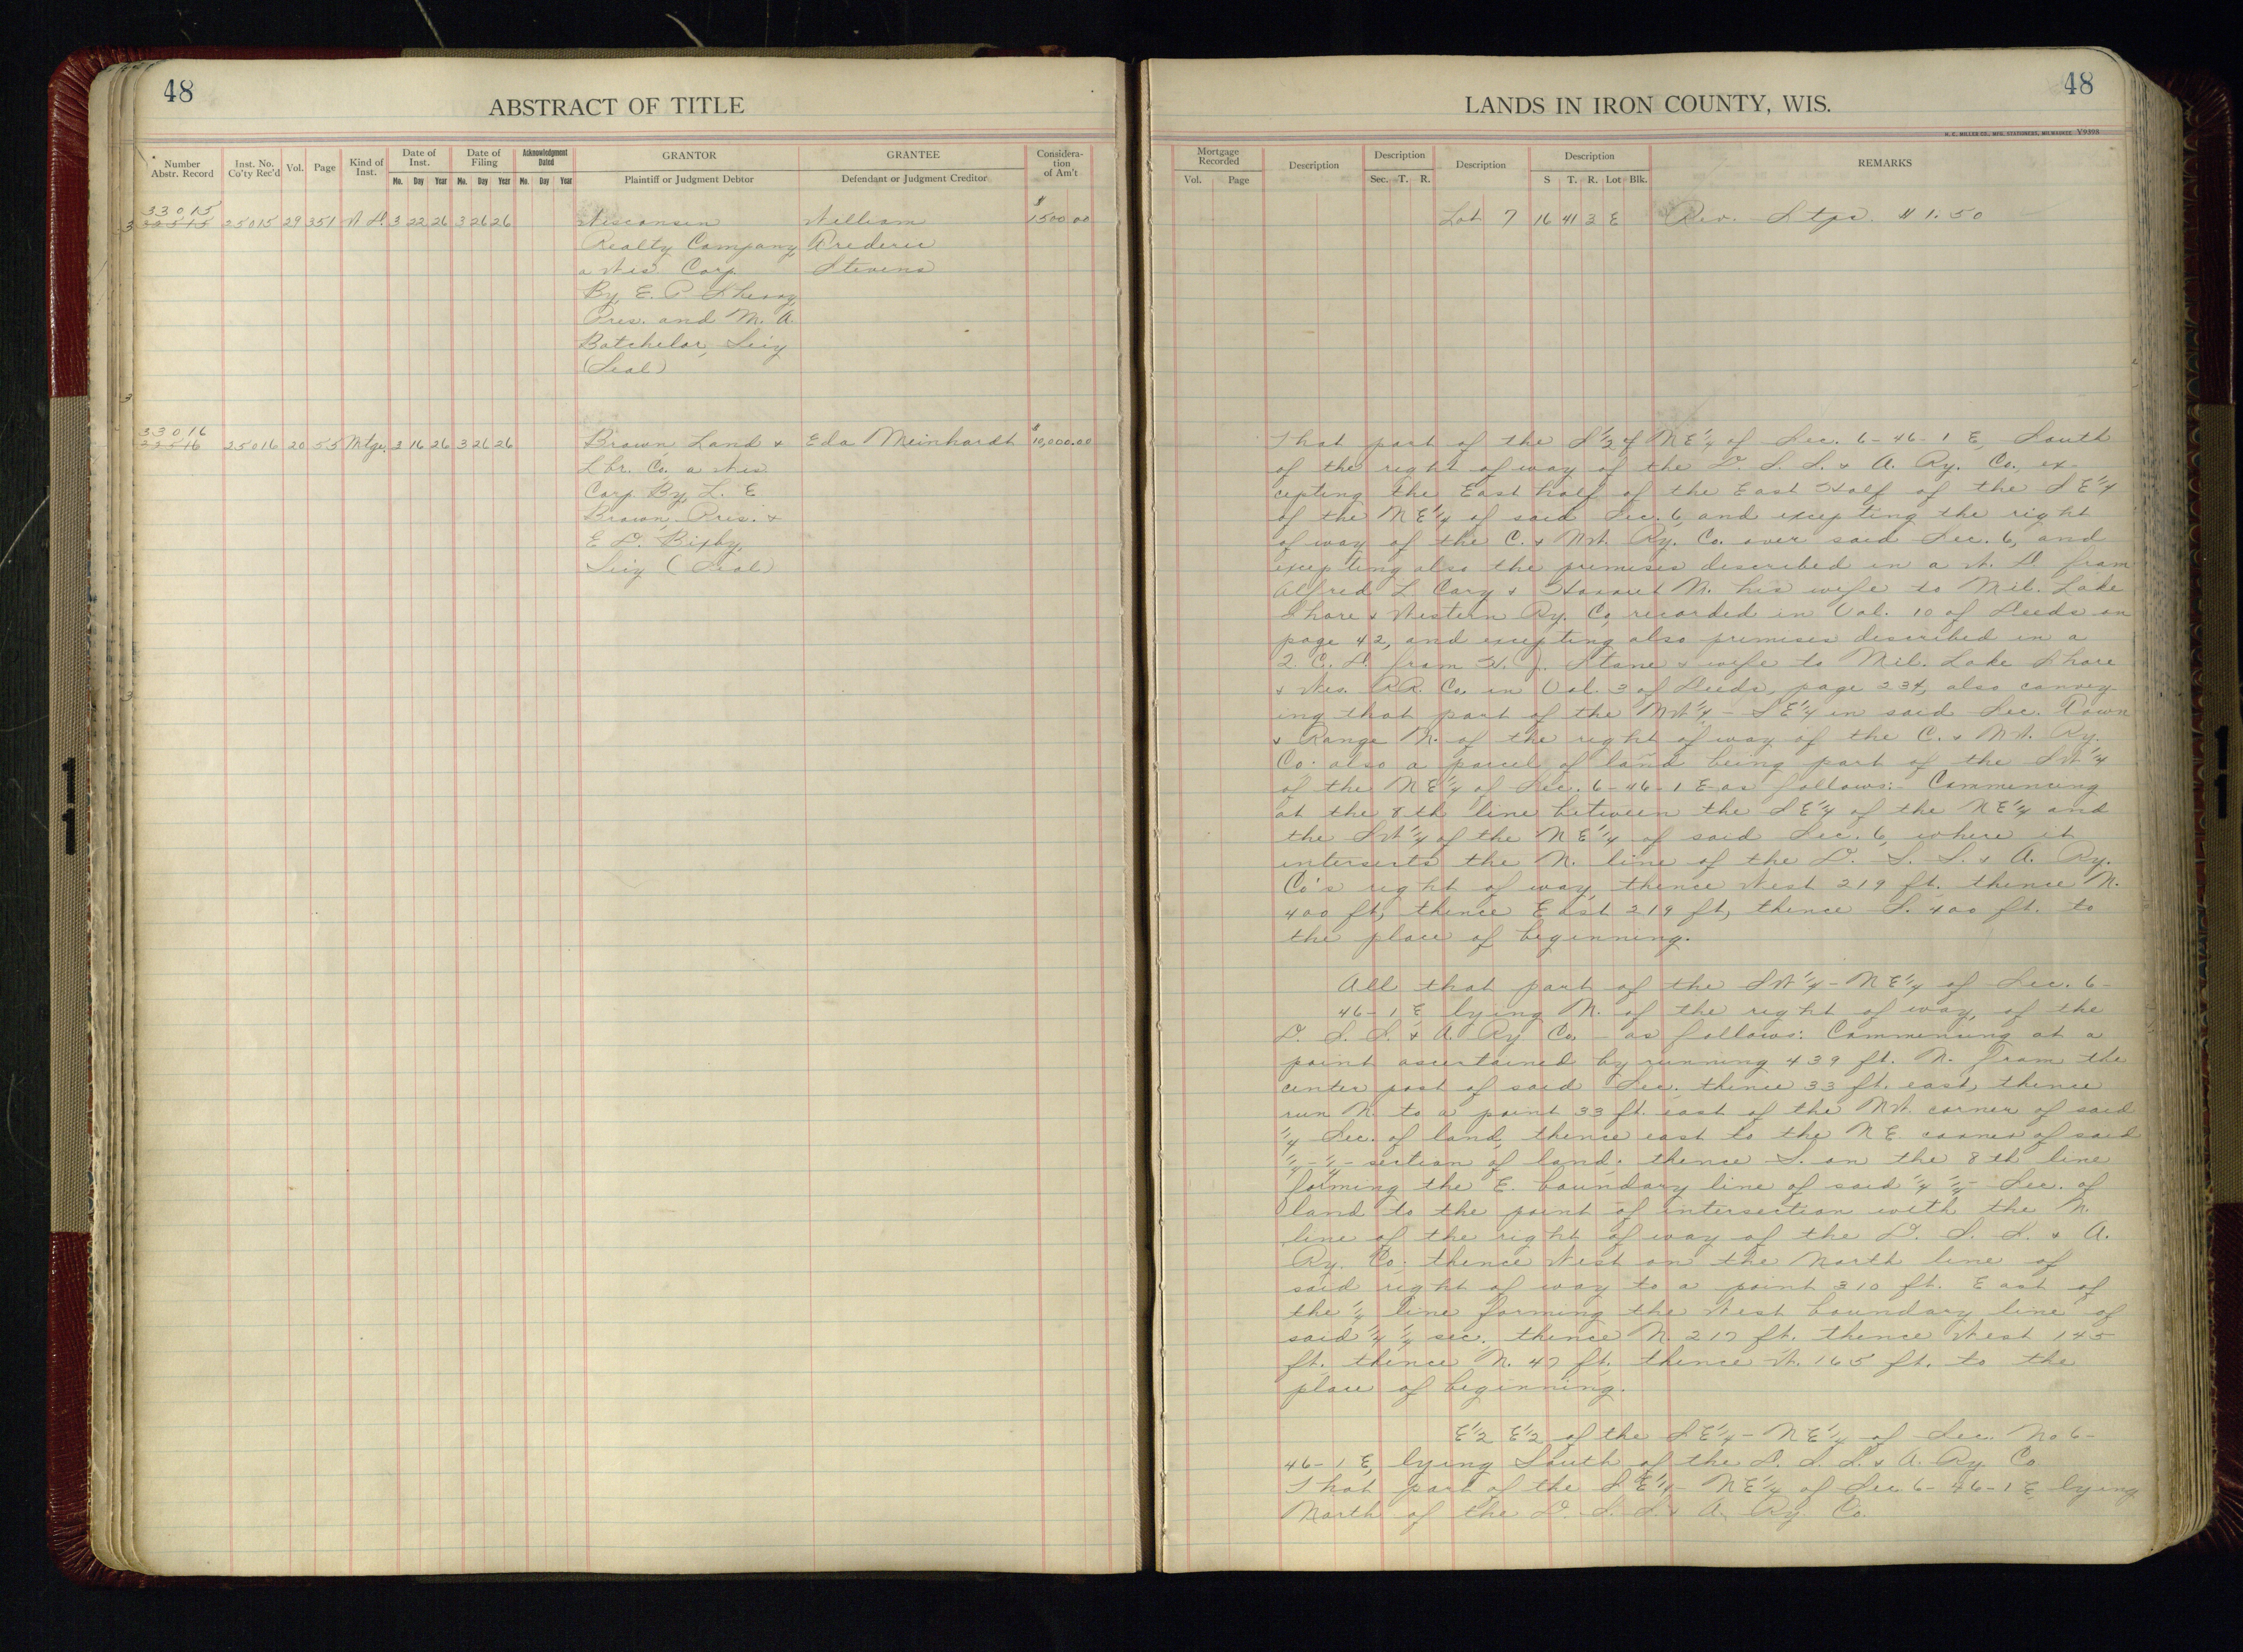 48
ABSTRACT OF TITLE
Number Abstr. Record
Inst. No. Co'ty Rec'd
Vol.
Page
Kind of Inst.
Date of Inst.
Mo. Day Year
Date of Filing
Mo. Day Year
Acknowledgment Dated
Mo. Day Year
GRANTOR
Plaintiff or Judgment Debtor
GRANTEE
Defendant or Judgment Creditor
Considera-
tion
of Am't
33015
22515 25015 29 351 W D. 3 22 26 3 26 26 Wisconsin William $1500 00
Realty Company, Frederic
a Wis Corp. Stevens
By, E. P. Sherry,
Pres. and M. A.
Batchelor, Sec'y
(Seal)
33016
22516 25016 20 55 Mtge. 3 16 26 3 26 26 Brown Land & Eda Meinhardt $10,000.00
Lbr. Co. a Wis
Corp By, L. E
Brown, Pres. &
E D. Bixby,
Sec'y (Seal)
48
LANDS IN IRON COUNTY, WIS.
H. C. MILLER CO., MFG. STATIONERS, MILWAUKEE V9898
Mortgage Recorded
Vol. Page
Description
Description
Sec. T. R.
Description
Description
S T. R. Lot Blk.
REMARKS
Lot 7 16 41 3 E Rev. Stps. $1.50
That part of the S½ of NE¼ of Sec. 6-46-1 E, South
of the right of way of the D. S. S. & A. Ry. Co., ex-
cepting the East half of the East Half of the SE¼
of the NE¼ of said Sec. 6, and excepting the right
of way of the C. & NW. Ry. Co. over said Sec. 6, and
excepting also the premises described in a W. D. from
Alfred L Cary & Harriet M. his wife to Mil. Lake
Shore & Western Ry. Co, recorded in Vol. 10 of Deeds on
page 42, and excepting also premises described in a
2. C. D. from H. J. Stone & wife to Mil. Lake Shore
& Wes. RR. Co. in Vol. 3 of Deeds, page 234, also convey-
ing that part of the NW¼ - SE¼ in said Sec. Town
& Range N. of the right of way of the C. & NW. Ry.
Co. also a parcel of land being part of the SW¼
of the NE¼ of Sec. 6-46-1 E as follows:- Commencing
at the 8th line between the SE¼ of the NE¼ and
the SW¼ of the NE¼ of said Sec. 6, where it
intersects the N. line of the D. S. S. & A. Ry.
Co's right of way, thence West 219 ft. thence N.
400 ft, thence East 219 ft, thence S. 400 ft. to
the place of beginning.
All that part of the SW¼ - NE¼ of Sec. 6-
46-1 E, lying N. of the right of way, of the
D. S. S. & A. Ry Co. - as follows: Commencing at a
point ascertained by running 439 ft. N. from the
center post of said Sec. thence 33 ft. east, thence
run N. to a point 33 ft. east of the NW. corner of said
¼ Sec. of land, thence east to the NE. corner of said
¼-¼-section of land; thence S. on the 8th line
forming the E. boundary line of said ¼ ¼- Sec. of
land to the point of intersection with the N.
line of the right of way of the D. S. S. & A.
Ry. Co; thence West on the North line of
said right of way to a point 310 ft. East of
the ¼ line forming the West boundary line of
said ¼ ¼ sec. thence N. 217 ft. thence West 145
ft. thence N. 47 ft. thence W. 165 ft. to the
place of beginning.
E½ E½ of the SE¼ - NE¼ of Sec. No 6-
46-1 E, lying South of the D. S. S. & A. Ry. Co
That part of the SE¼- NE¼ of Sec 6-46-1 E, lying
North of the D. S. S. & A. Ry. Co.